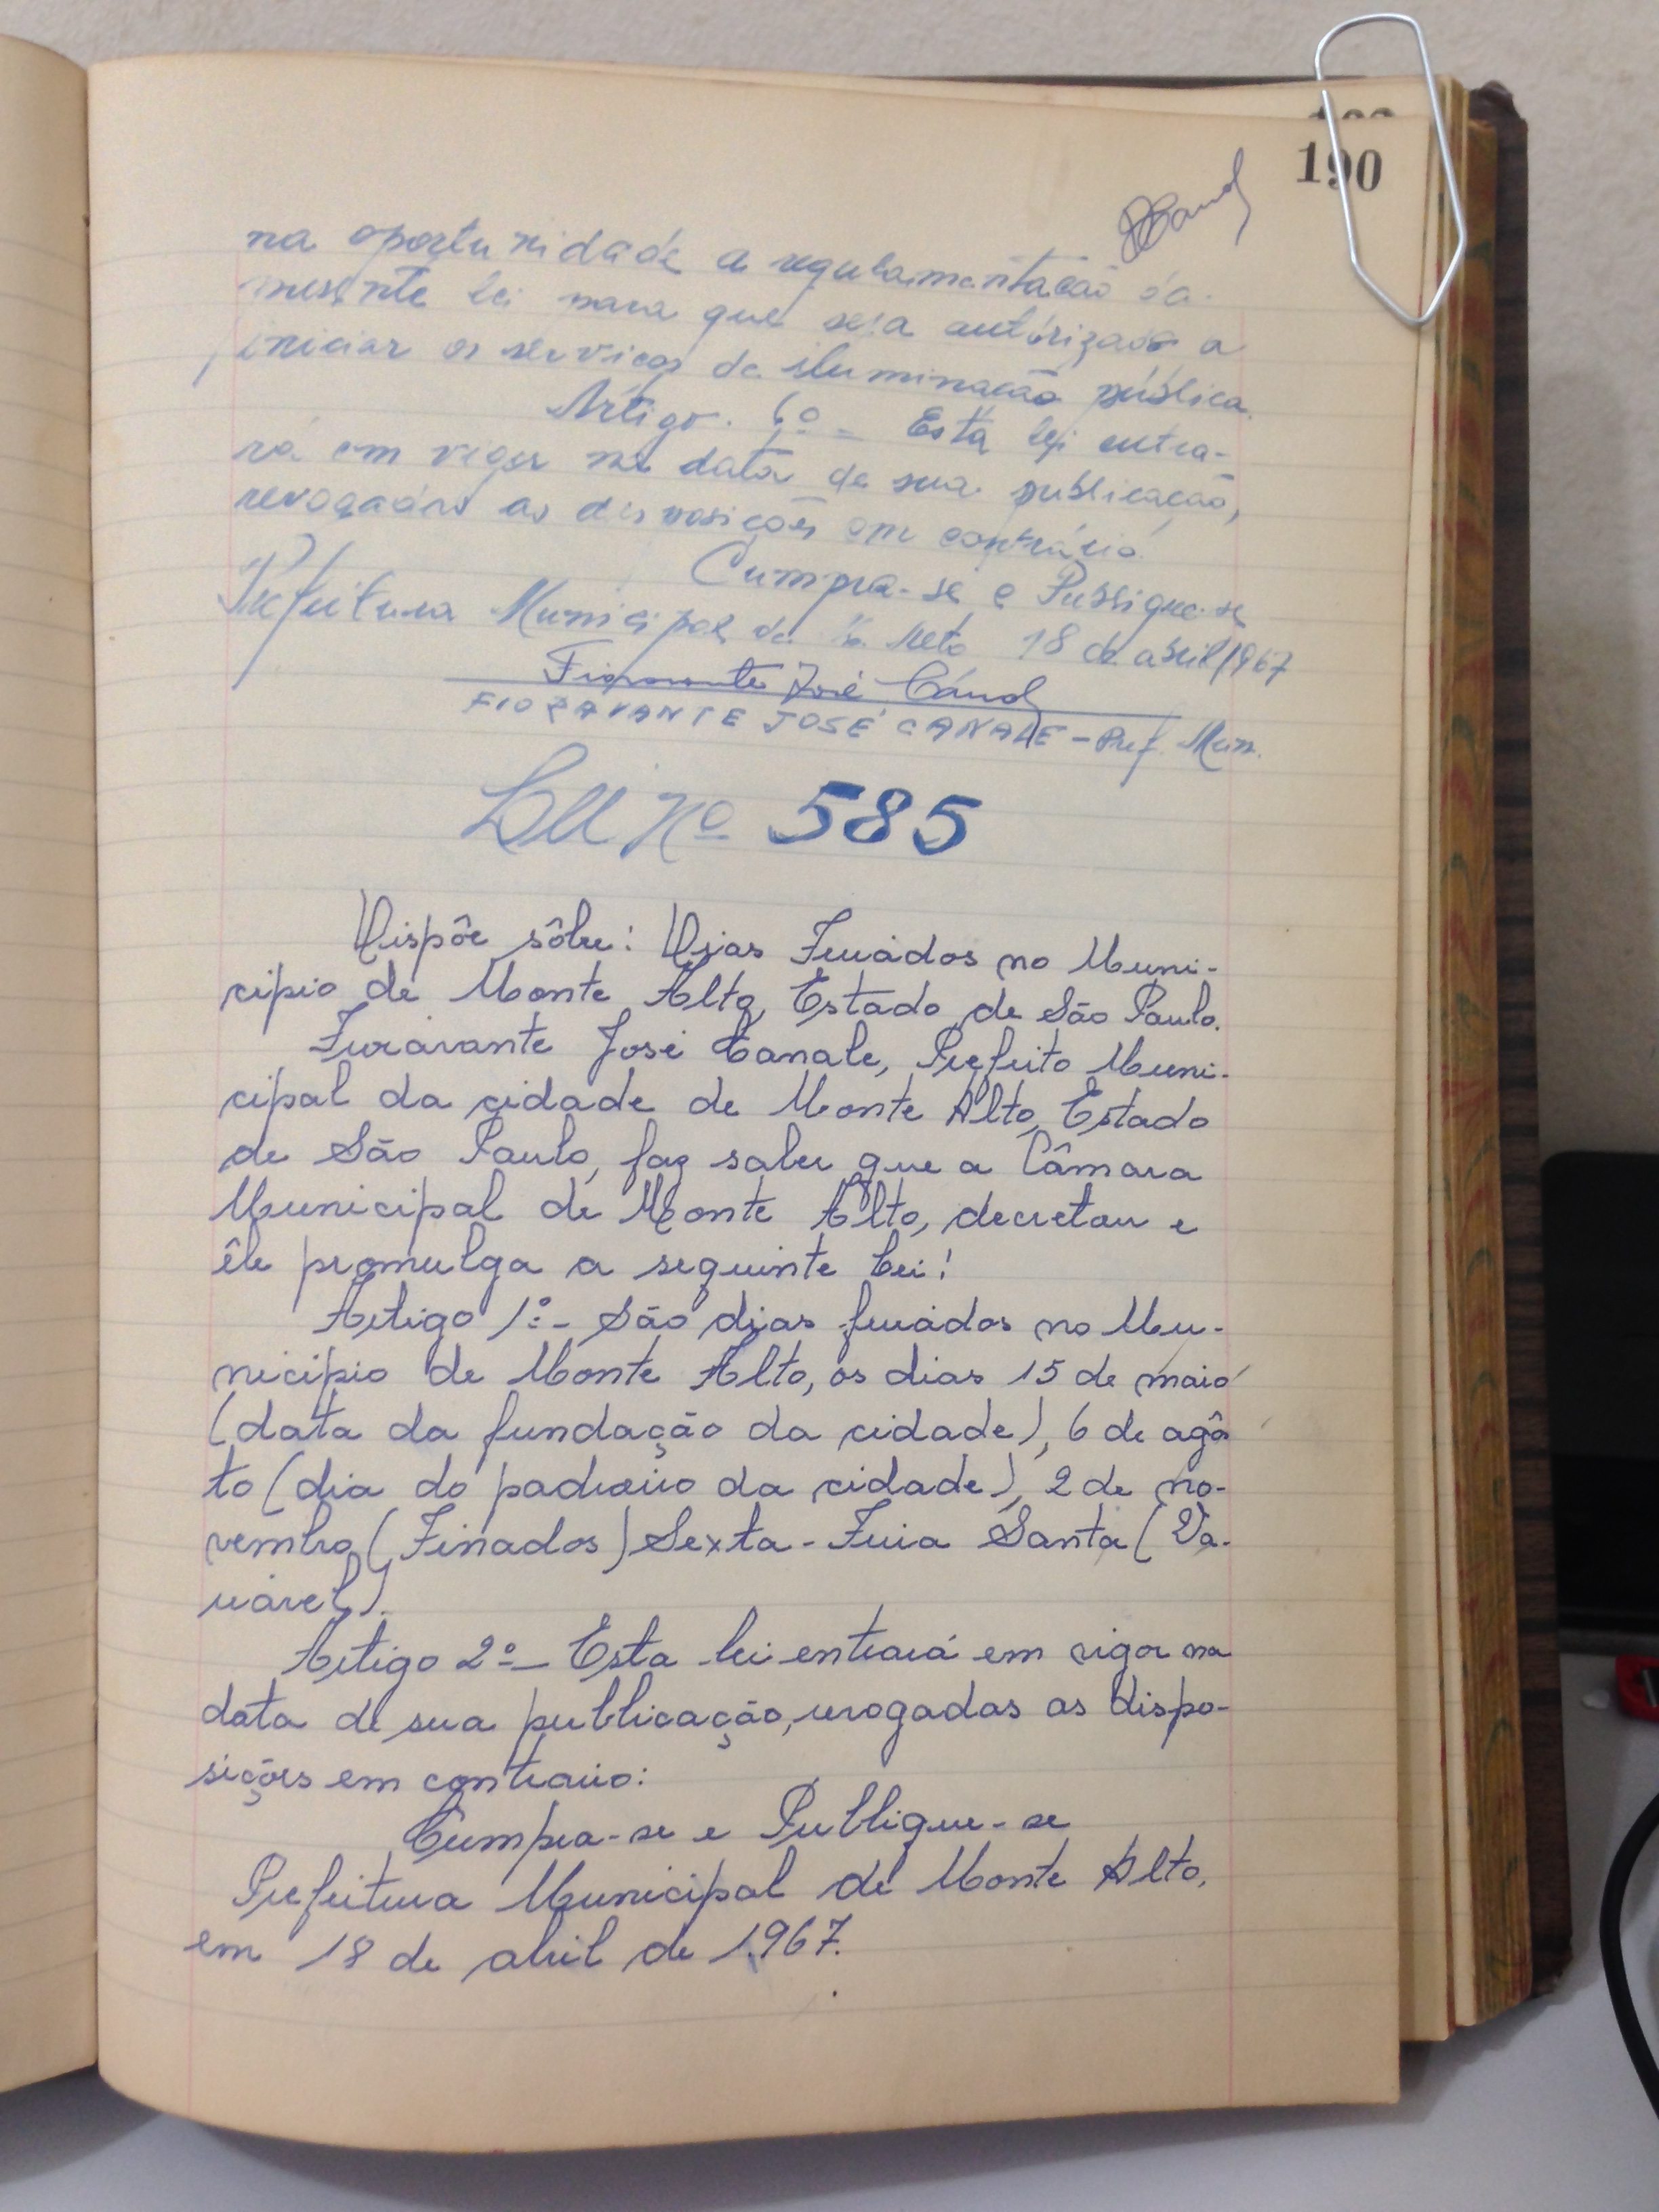 190
na oportunidade a regulamentação da
presente lei para que seja autorizado a
iniciar os serviços de iluminação pública.
Artigo. 6º - Esta lei entra-
rá em vigor na data de sua publicação,
revogadas as disposições em contrário.
Cumpra-se e Publique-se
Prefeitura Municipal de M. Alto 18 de abril/1967
Fioravante José Canale
FIORAVANTE JOSÉ CANALE - Pref. Mun.
Lei Nº 585
Dispõe sôbre: Dias Feriados no Muni-
cipio de Monte Alto, Estado de São Paulo.
Fioravante José Canale, Prefeito Muni-
cipal da cidade de Monte Alto, Estado
de São Paulo, faz saber que a Câmara
Municipal de Monte Alto, decretou e
êle promulga a seguinte lei:
Artigo 1º - São dias feriados no Mu-
nicipio de Monte Alto, os dias 15 de maio
(data da fundação da cidade), 6 de agôs
to (dia do padroeiro da cidade), 2 de no-
vembro (Finados) Sexta-Feira Santa (Va-
riável).
Artigo 2º - Esta lei entrará em vigor na
data de sua publicação, revogadas as dispo-
sições em contrario:
Cumpra-se e Publique-se
Prefeitura Municipal de Monte Alto,
em 18 de abril de 1967.